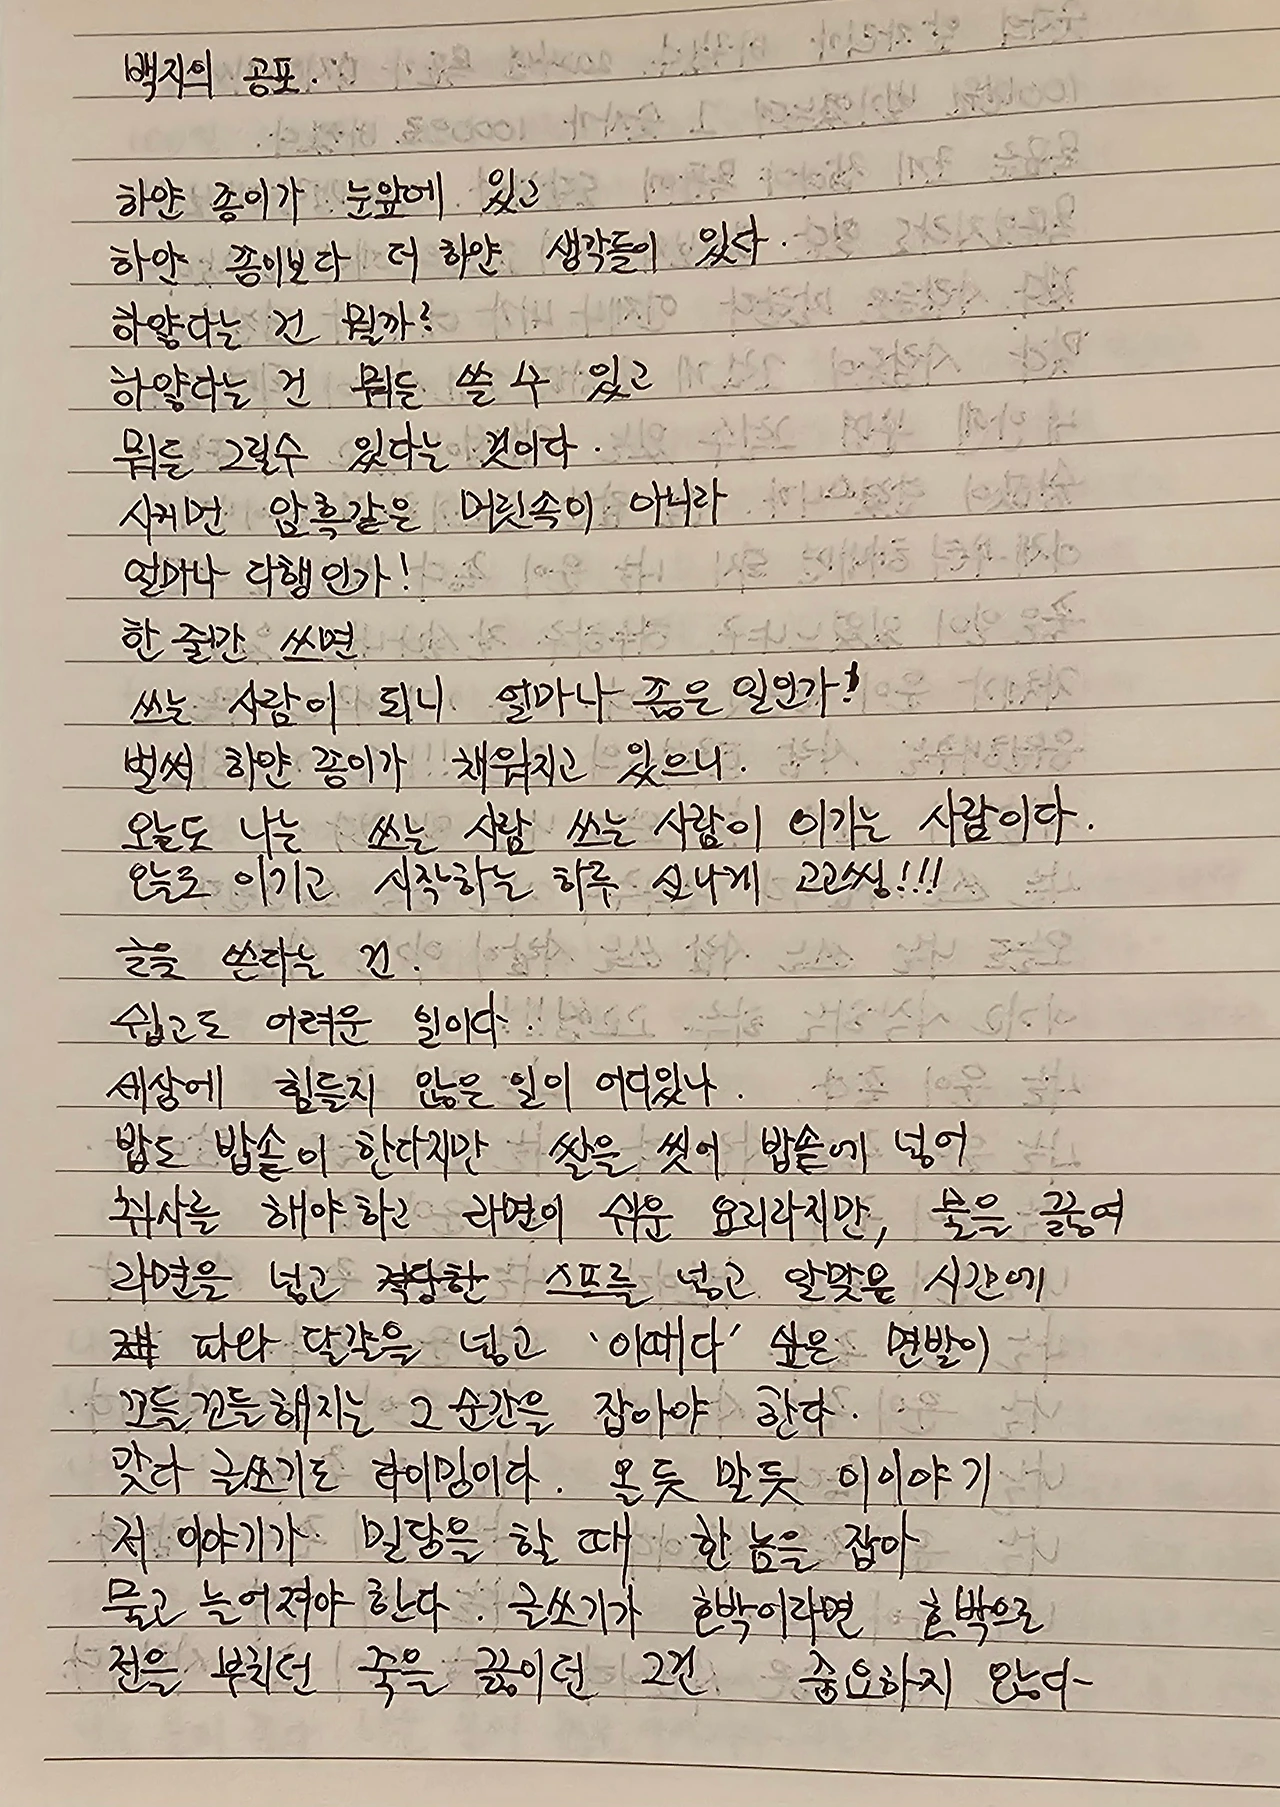 백지의 공포.
하얀 종이가 눈앞에 있고
하얀 종이보다 더 하얀 생각들이 있다.
하얗다는 건 뭘까?
하얗다는 건 뭐든 쓸 수 있고
뭐든 그릴수 있다는 것이다.
시커먼 암흑같은 머릿속이 아니라
얼마나 다행인가!
한 줄만 쓰면
쓰는 사람이 되니 얼마나 좋은 일인가!
벌써 하얀 종이가 채워지고 있으니.
오늘도 나는 쓰는 사람 쓰는 사람이 이기는 사람이다.
오늘도 이기고 시작하는 하루 신나게 고고씽!!!
글을 쓴다는 건.
쉽고도 어려운 일이다.
세상에 힘들지 않은 일이 어디있나.
밥도 밥솥이 한다지만 쌀을 씻어 밥솥에 넣어
취사를 해야하고 라면이 쉬운 요리라지만, 물을 끓여
라면을 넣고 적당한 스프를 넣고 알맞은 시간에
파와 달걀을 넣고 '이때다' 싶은 면발이
꼬들꼬들해지는 그 순간을 잡아야 한다.
맞다 글쓰기도 타이밍이다. 올듯 말듯 이이야기
저 이야기가 밀당을 할 때 한 놈을 잡아
물고 늘어져야 한다. 글쓰기가 호박이라면 호박으로
전을 부치던 죽을 끓이던 그건 중요하지 않다